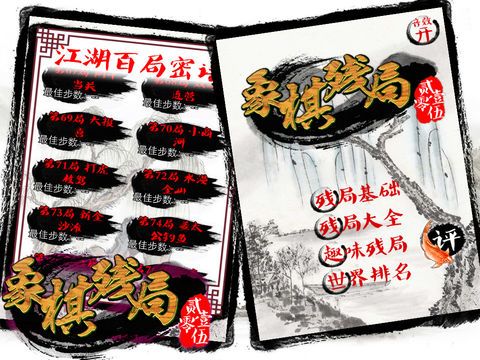 江湖百局密
连营
最佳步数:
最佳步数:
第69局 大报
喜
第70局 小
河
最佳步数:
最佳步数:
第71局 打虎
第72局 水漫
金山
最佳步数:
最佳步数:
第73局
沙滩
第74局 姜太
公钓鱼
最佳步数:
最佳步数:
象棋残局
贰零壹伍
音效
开
象棋残局
贰零壹伍
残局基础
残局大全
趣味残局
世界排名
评